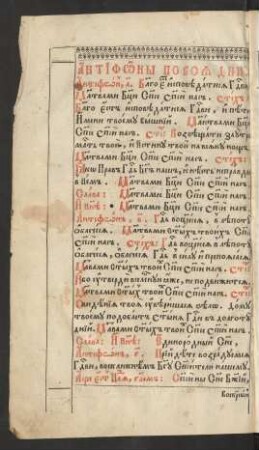 АНТІФѠНЫ ПОВСѦ ДНИ
Антифѡн, а҃. Бл҃го єⷭ҇ исповѣдатисѧ Гдⷭ҇ви
Мл҃твами Бц҃и Сп҃си Сп҃си насъ. Стїхъ:
Бл҃го єстъ исповѣдатисѧ Гдⷭ҇ви, и пѣти
Имени твоему вышнїй. Мл҃итвами Бц҃и
Сп҃си Сп҃си насъ. Стⷯ: Повѣщати заутра
млⷭ҇ть твою, и Истину твою на всѧку нощъ
Мл҃твами Бц҃и Сп҃си Сп҃си насъ. Стїхъ:
Ꙗко Правъ Гдⷭ҇ь Бг҃ъ нашъ, и нѣстъ неправды
в Немъ. Мл҃твами Бц҃и Сп҃си Сп҃си насъ.
Слава: Мл҃твами Бц҃и Сп҃си Сп҃си насъ.
И Нн҃ѣ: Мл҃твами Бц҃и Сп҃си Сп҃си насъ.
Антифѡнъ, в҃. Гдⷭ҇ь воцр҃исѧ, в лѣпоту
облечесѧ. Мл҃твами Ст҃ыхъ твоихъ Сп҃си
Сп҃си насъ. Стїхъ: Гдⷭ҇ь воцр҃исѧ в лѣпоту
облечесѧ, облечесѧ Гдⷭ҇ь в силу и препоѧсасѧ
Мл҃вами ст҃ыхъ твои Сп҃си Сп҃си насъ. Стїⷯ
Ибо оутверди вселенную ꙗже, не подвижитсѧ.
Мл҃твами ст҃ыхъ твои Сп҃си Сп҃си насъ. Стⷯ:
Свидѣнїѧ твоѧ оувѣришасѧ ѕѣло. Дому
твоему подобаетъ ст҃ынѧ Гдⷭ҇и в долготу
днїй. Мл҃вами ст҃ыхъ твои Сп҃си Сп҃си насъ.
Слава: И Нн҃ѣ: Единородный Сн҃е,
Антифѡнъ, г҃. Прїидѣте возрадуимсѧ
Гдⷭ҇ви, воскликнѣмъ Бг҃у Сп҃сителю нашему.
Сп҃си ны Сн҃е Бж҃їй,